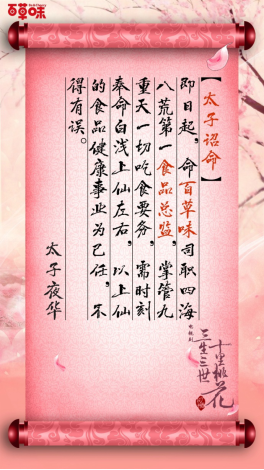 百草味
【太子诏命】
即日起，命百草味司职四海
八荒第一食品总监，掌管九
重天一切吃食要务，需时刻
奉命白浅上仙左右，以上仙
的食品健康事业为己任，不
得有误。
太子夜华
电视剧
三生三世
十里桃花